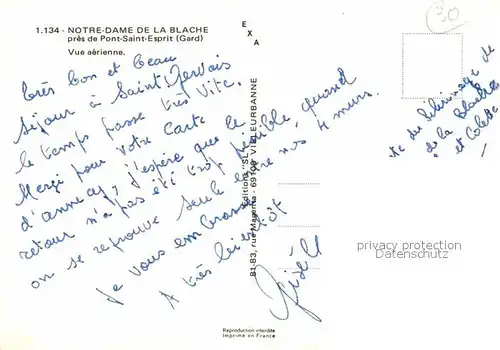 1.134 - NOTRE-DAME DE LA BLACHE
près de Pont-Saint-Esprit (Gard)
Vue aérienne.
EXA
30
très bon et beau
séjour à Saint Gervais
le temps passe très vite.
Merci pour votre carte
d'annecy, j'espère que le
retour n'a pas été trop pénible, quand
on se retrouve seule entre nos 4 murs.
Je vous embrasse
A très bientôt
Gisèle
du Pélerinage de
de la Blache
et Colette
Editions "S
81-83, rue Magenta - 69100 VILLEURBANNE
privacy protection
Datenschutz
Reproduction interdite
Imprimé en France